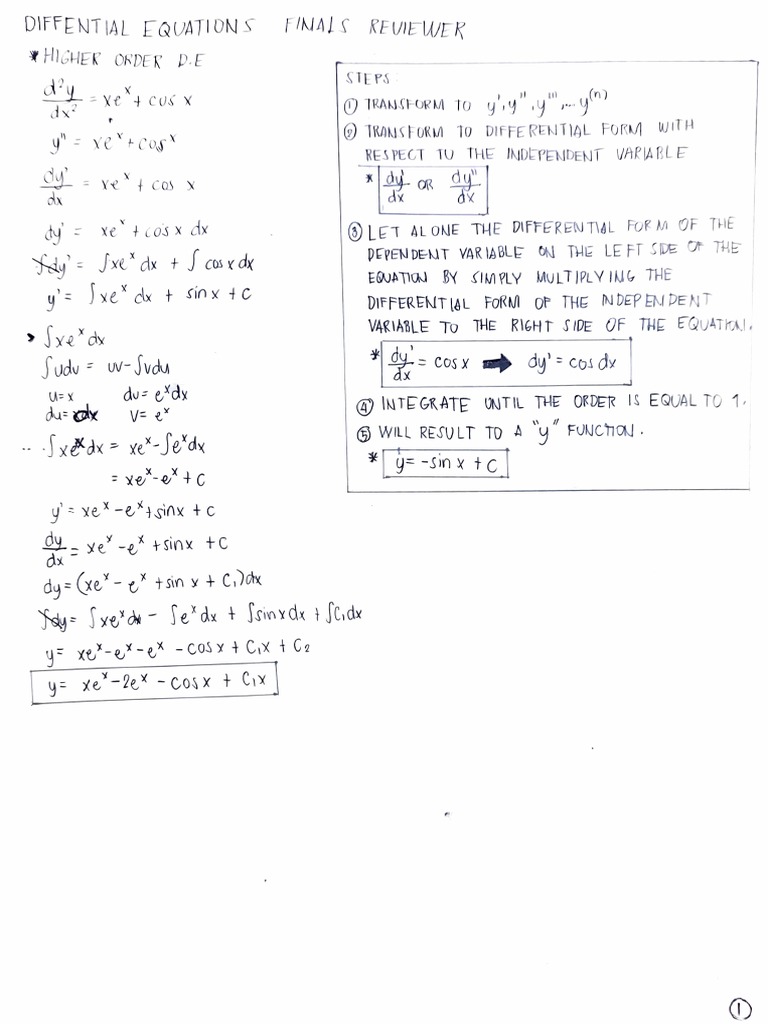 DIFFENTIAL EQUATIONS FINALS REVIEWER
* HIGHER ORDER D.E
d²y/dx² = xe^x + cos x
y" = xe^x + cos x
dy'/dx = xe^x + cos x
dy' = xe^x + cos x dx
∫dy' = ∫xe^x dx + ∫cos x dx
y' = ∫xe^x dx + sin x + C
> ∫xe^x dx
∫udv = uv - ∫vdu
u = x dv = e^x dx
du = dx v = e^x
∴ ∫xe^x dx = xe^x - ∫e^x dx
= xe^x - e^x + C
y' = xe^x - e^x + sin x + C
dy/dx = xe^x - e^x + sin x + C
dy = (xe^x - e^x + sin x + C₁)dx
∫dy = ∫xe^x dx - ∫e^x dx + ∫sin x dx + ∫C₁dx
y = xe^x - e^x - e^x - cos x + C₁x + C₂
y = xe^x - 2e^x - cos x + C₁x
STEPS:
① TRANSFORM TO y', y", y"', ... y^(n)
② TRANSFORM TO DIFFERENTIAL FORM WITH
RESPECT TO THE INDEPENDENT VARIABLE
* dy'/dx OR dy"/dx
③ LET ALONE THE DIFFERENTIAL FORM OF THE
DEPENDENT VARIABLE ON THE LEFT SIDE OF THE
EQUATION BY SIMPLY MULTIPLYING THE
DIFFERENTIAL FORM OF THE INDEPENDENT
VARIABLE TO THE RIGHT SIDE OF THE EQUATION.
* dy'/dx = cos x ➡ dy' = cos dx
④ INTEGRATE UNTIL THE ORDER IS EQUAL TO 1.
⑤ WILL RESULT TO A "y" FUNCTION.
* y = -sin x + C
①